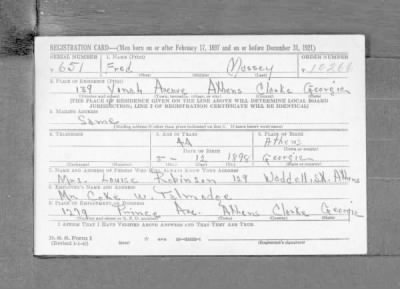 REGISTRATION CARD—(Men born on or after February 17, 1897 and on or before December 31, 1921)
SERIAL NUMBER 1. NAME (Print) ORDER NUMBER
651 Fred Mossey
(First) (Middle) (Last)
2. PLACE OF RESIDENCE (Print)
139 Yonah Avenue Athens Clarke Georgia
(Number and street) (Town, township, village, or city) (County) (State)
[THIS PLACE OF RESIDENCE GIVEN ON THE LINE ABOVE WILL DETERMINE LOCAL BOARD
JURISDICTION; LINE 2 OF REGISTRATION CERTIFICATE WILL BE IDENTICAL]
3. MAILING ADDRESS
Same
[Mailing address if other than place indicated on line 2. If same insert word same]
4. TELEPHONE 5. AGE IN YEARS 6. PLACE OF BIRTH
44 Athens
DATE OF BIRTH (Town or county)
5- 12 1898 Georgia
(Exchange) (Number) (Mo.) (Day) (Yr.) (State or country)
7. NAME AND ADDRESS OF PERSON WHO WILL ALWAYS KNOW YOUR ADDRESS
Mrs. Louise Robinson 129 Waddell St. Athens
8. EMPLOYER'S NAME AND ADDRESS
Mr. Coke W. Talmadge
9. PLACE OF EMPLOYMENT OR BUSINESS
1279 Prince Ave. Athens Clarke Georgia
(Number and street or R. F. D. number) (Town) (County) (State)
I AFFIRM THAT I HAVE VERIFIED ABOVE ANSWERS AND THAT THEY ARE TRUE.
D. S. S. Form 1
(Revised 1-1-42) (over) (Registrant's signature)